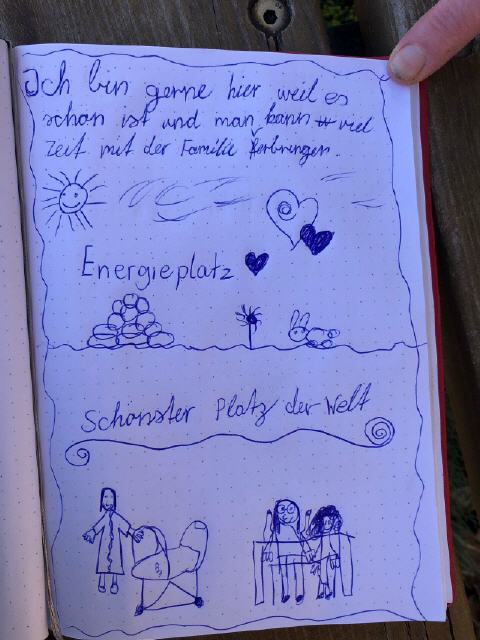 Ich bin gerne hier weil es
schön ist und man kann viel
Zeit mit der Familie verbringen.
Energieplatz
Schönster Platz der Welt